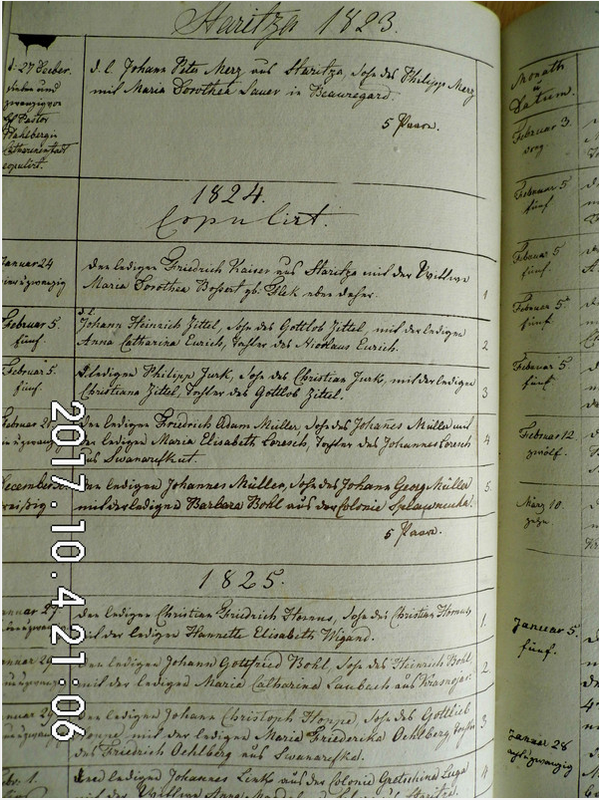 Staritza 1823.
d. 27 Decbr.
sieben und
zwanzig von
H Pastor
Wahlberg in
Catharinenstadt
copulirt.
d. l. Johann Peter Merz aus Staritza, Sohn des Philipp Merz
mit Maria Dorothea Sauer in Beauregard.
5 Paare.
1824.
Copulirt.
Januar 24
Den ledigen Friedrich Kaiser aus Staritza mit der Wittwe
Maria Dorothea Bossert gb. Flek eben daher.
1
Februar 5.
fünf.
d. l.
Johann Heinrich Zittel, Sohn des Gottlob Zittel, mit der ledigen
Anna Catharina Eurich, Tochter des Nicolaus Eurich.
2
Februar 5.
fünf.
d. ledigen Philipp Jurk, Sohn des Christian Jurk, mit der ledigen
Christiana Zittel, Tochter des Gottlob Zittel.
3
Den ledigen Friedrich Adam Müller, Sohn des Johannes Müller und
der ledigen Maria Elisabeth Loresch, Tochter des Johannes Loresch
aus Swanareffkut.
4
December
Den ledigen Johannes Müller, Sohn des Johann Georg Müller
mit der ledigen Barbara Bohl aus der Colonie
5
5 Paare.
1825.
Januar 27
Den ledigen Christian Friedrich Hornus, Sohn des Christian Hornus
mit der ledigen Hannette Elisabeth Wigand.
1.
Den ledigen Johann Gottfried Bohl, Sohn des Heinrich Bohl,
mit der ledigen Maria Catharina Laubach aus Krasnojar
2
Den ledigen Johann Christoph Hoppe, Sohn des Gottlieb
Hoppe, mit der ledigen Maria Friederika Oehlberg, Tochter
des Friedrich Oehlberg aus Swanarefka.
3
Den ledigen Johannes Lerk aus der Colonie
mit der Wittwe Anna
4
Monath
u
Datum.
Februar 3.
drey.
Februar 5.
fünf
Februar 5
fünf
Februar 5.
fünf.
Februar 5.
fünf.
Februar 12.
zwölf.
März 10.
zehn.
Januar 5.
fünf.
Januar 28
achtundzwanzig
2017.10.4 21:06